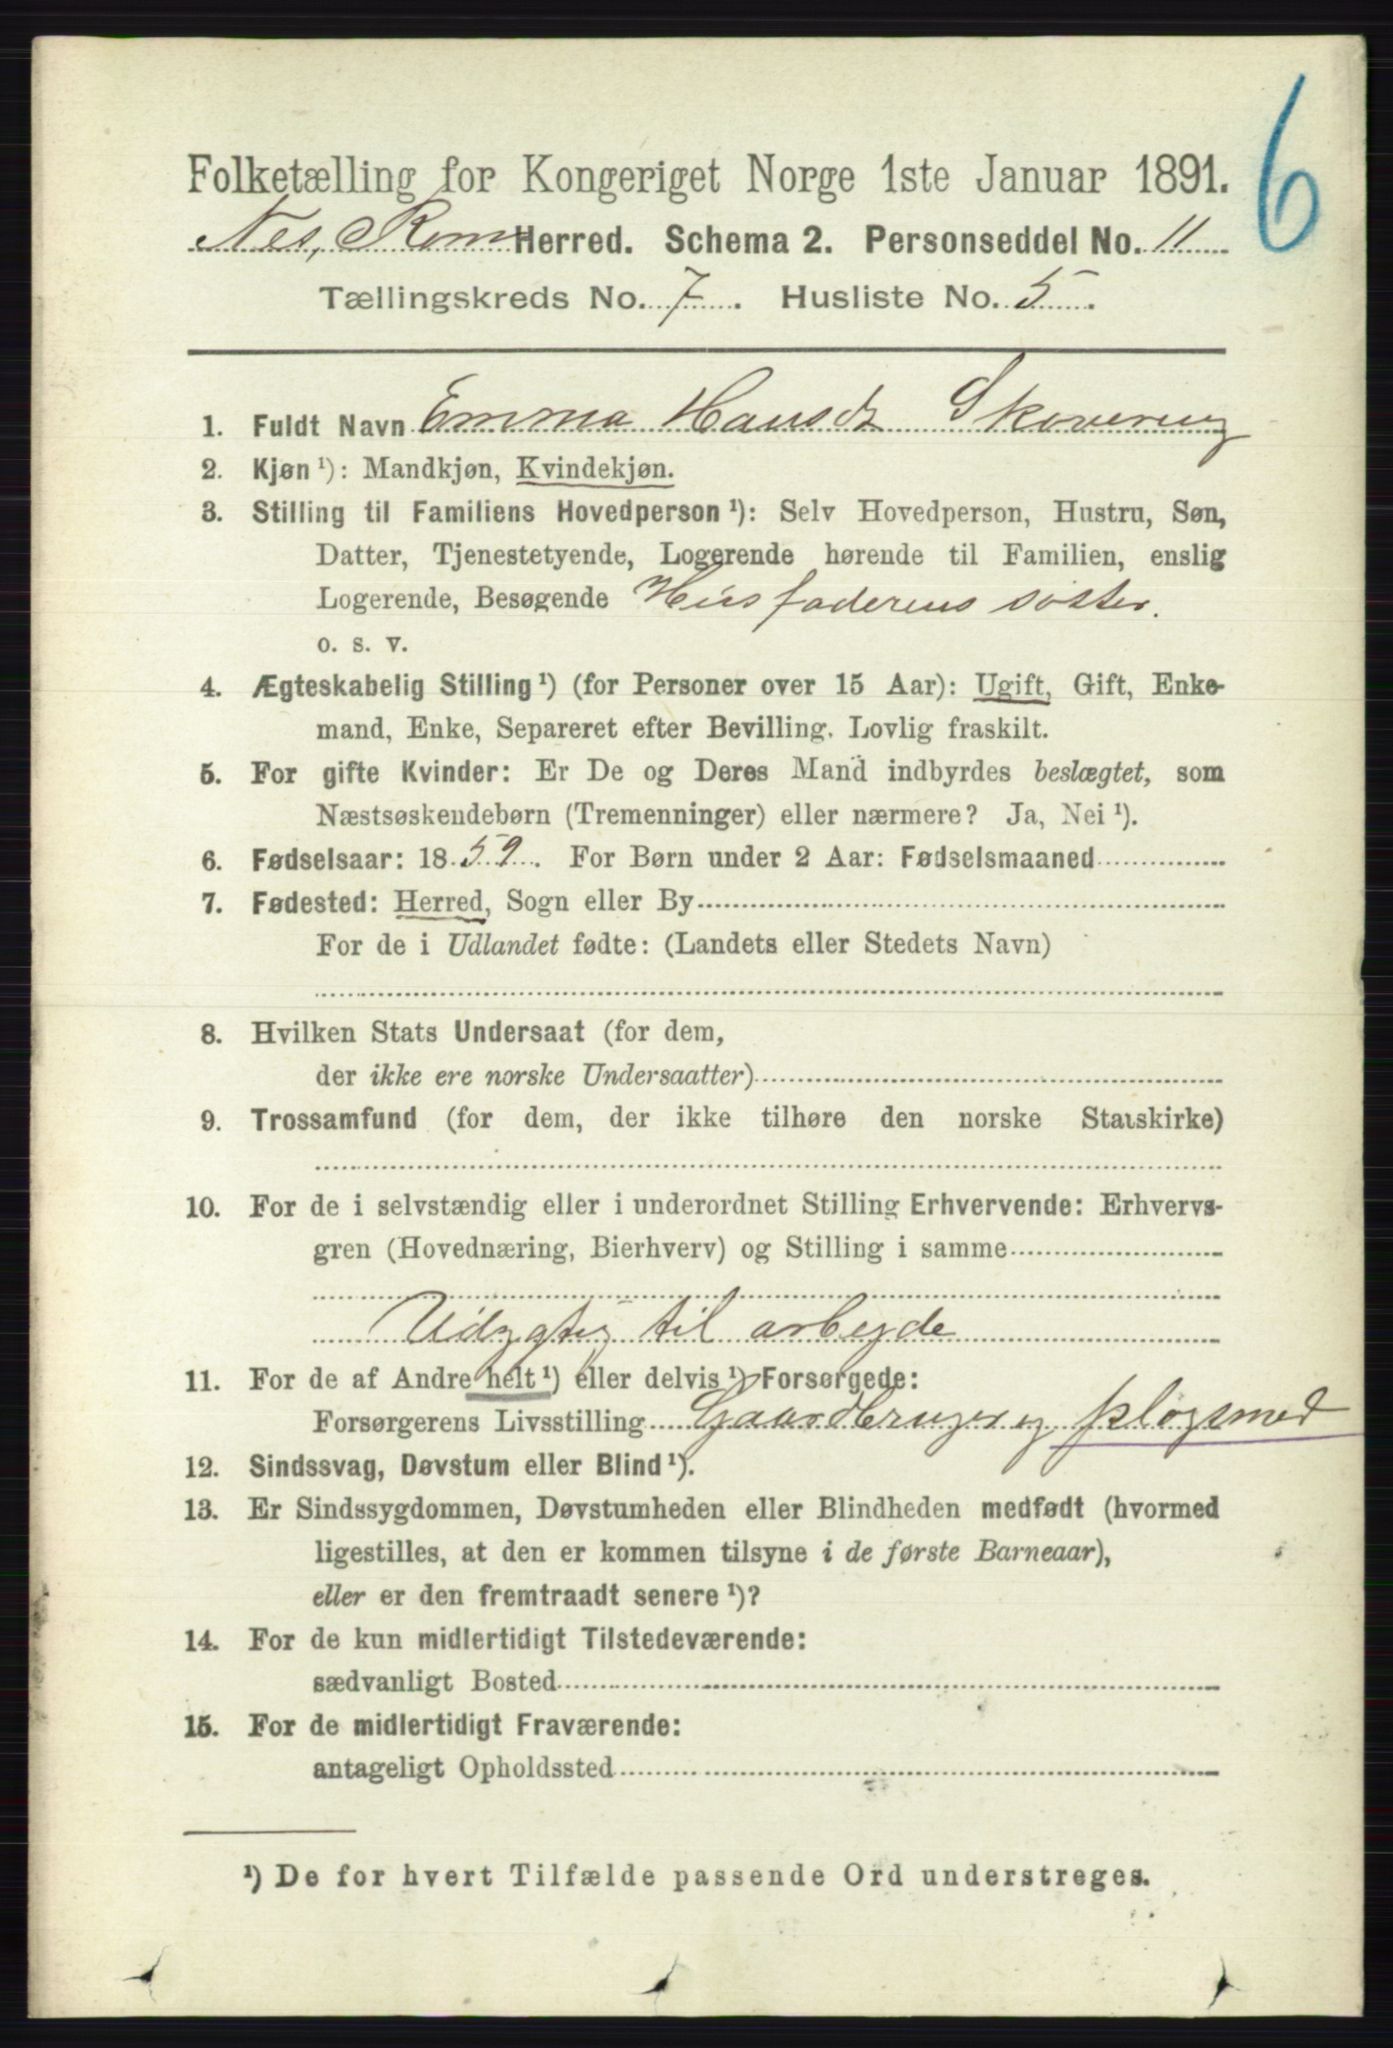 6
Folketælling for Kongeriget Norge 1ste Januar 1891.
Nes, Rom. Herred. Schema 2. Personseddel No. 11
Tællingskreds No. 7. Husliste No. 5.
1. Fuldt Navn Emma Hansdt Skovering
2. Kjøn ¹): Mandkjøn, Kvindekjøn.
3. Stilling til Familiens Hovedperson ¹): Selv Hovedperson, Hustru, Søn,
Datter, Tjenestetyende, Logerende hørende til Familien, enslig
Logerende, Besøgende Husfaderens søster.
o. s. v.
4. Ægteskabelig Stilling ¹) (for Personer over 15 Aar): Ugift, Gift, Enke-
mand, Enke, Separeret efter Bevilling. Lovlig fraskilt.
5. For gifte Kvinder: Er De og Deres Mand indbyrdes beslægtet, som
Næstsøskendebørn (Tremenninger) eller nærmere? Ja, Nei ¹).
6. Fødselsaar: 1859. For Børn under 2 Aar: Fødselsmaaned
7. Fødested: Herred, Sogn eller By
For de i Udlandet fødte: (Landets eller Stedets Navn)
8. Hvilken Stats Undersaat (for dem,
der ikke ere norske Undersaatter)
9. Trossamfund (for dem, der ikke tilhøre den norske Statskirke)
10. For de i selvstændig eller i underordnet Stilling Erhvervende: Erhvervs-
gren (Hovednæring, Bierhverv) og Stilling i samme
Udygtig til arbejde
11. For de af Andre helt ¹) eller delvis ¹) Forsørgede:
Forsørgerens Livsstilling Gaardbruger og plogsmed
12. Sindssvag, Døvstum eller Blind ¹).
13. Er Sindssygdommen, Døvstumheden eller Blindheden medfødt (hvormed
ligestilles, at den er kommen tilsyne i de første Barneaar),
eller er den fremtraadt senere ¹)?
14. For de kun midlertidigt Tilstedeværende:
sædvanligt Bosted
15. For de midlertidigt Fraværende:
antageligt Opholdssted
¹) De for hvert Tilfælde passende Ord understreges.